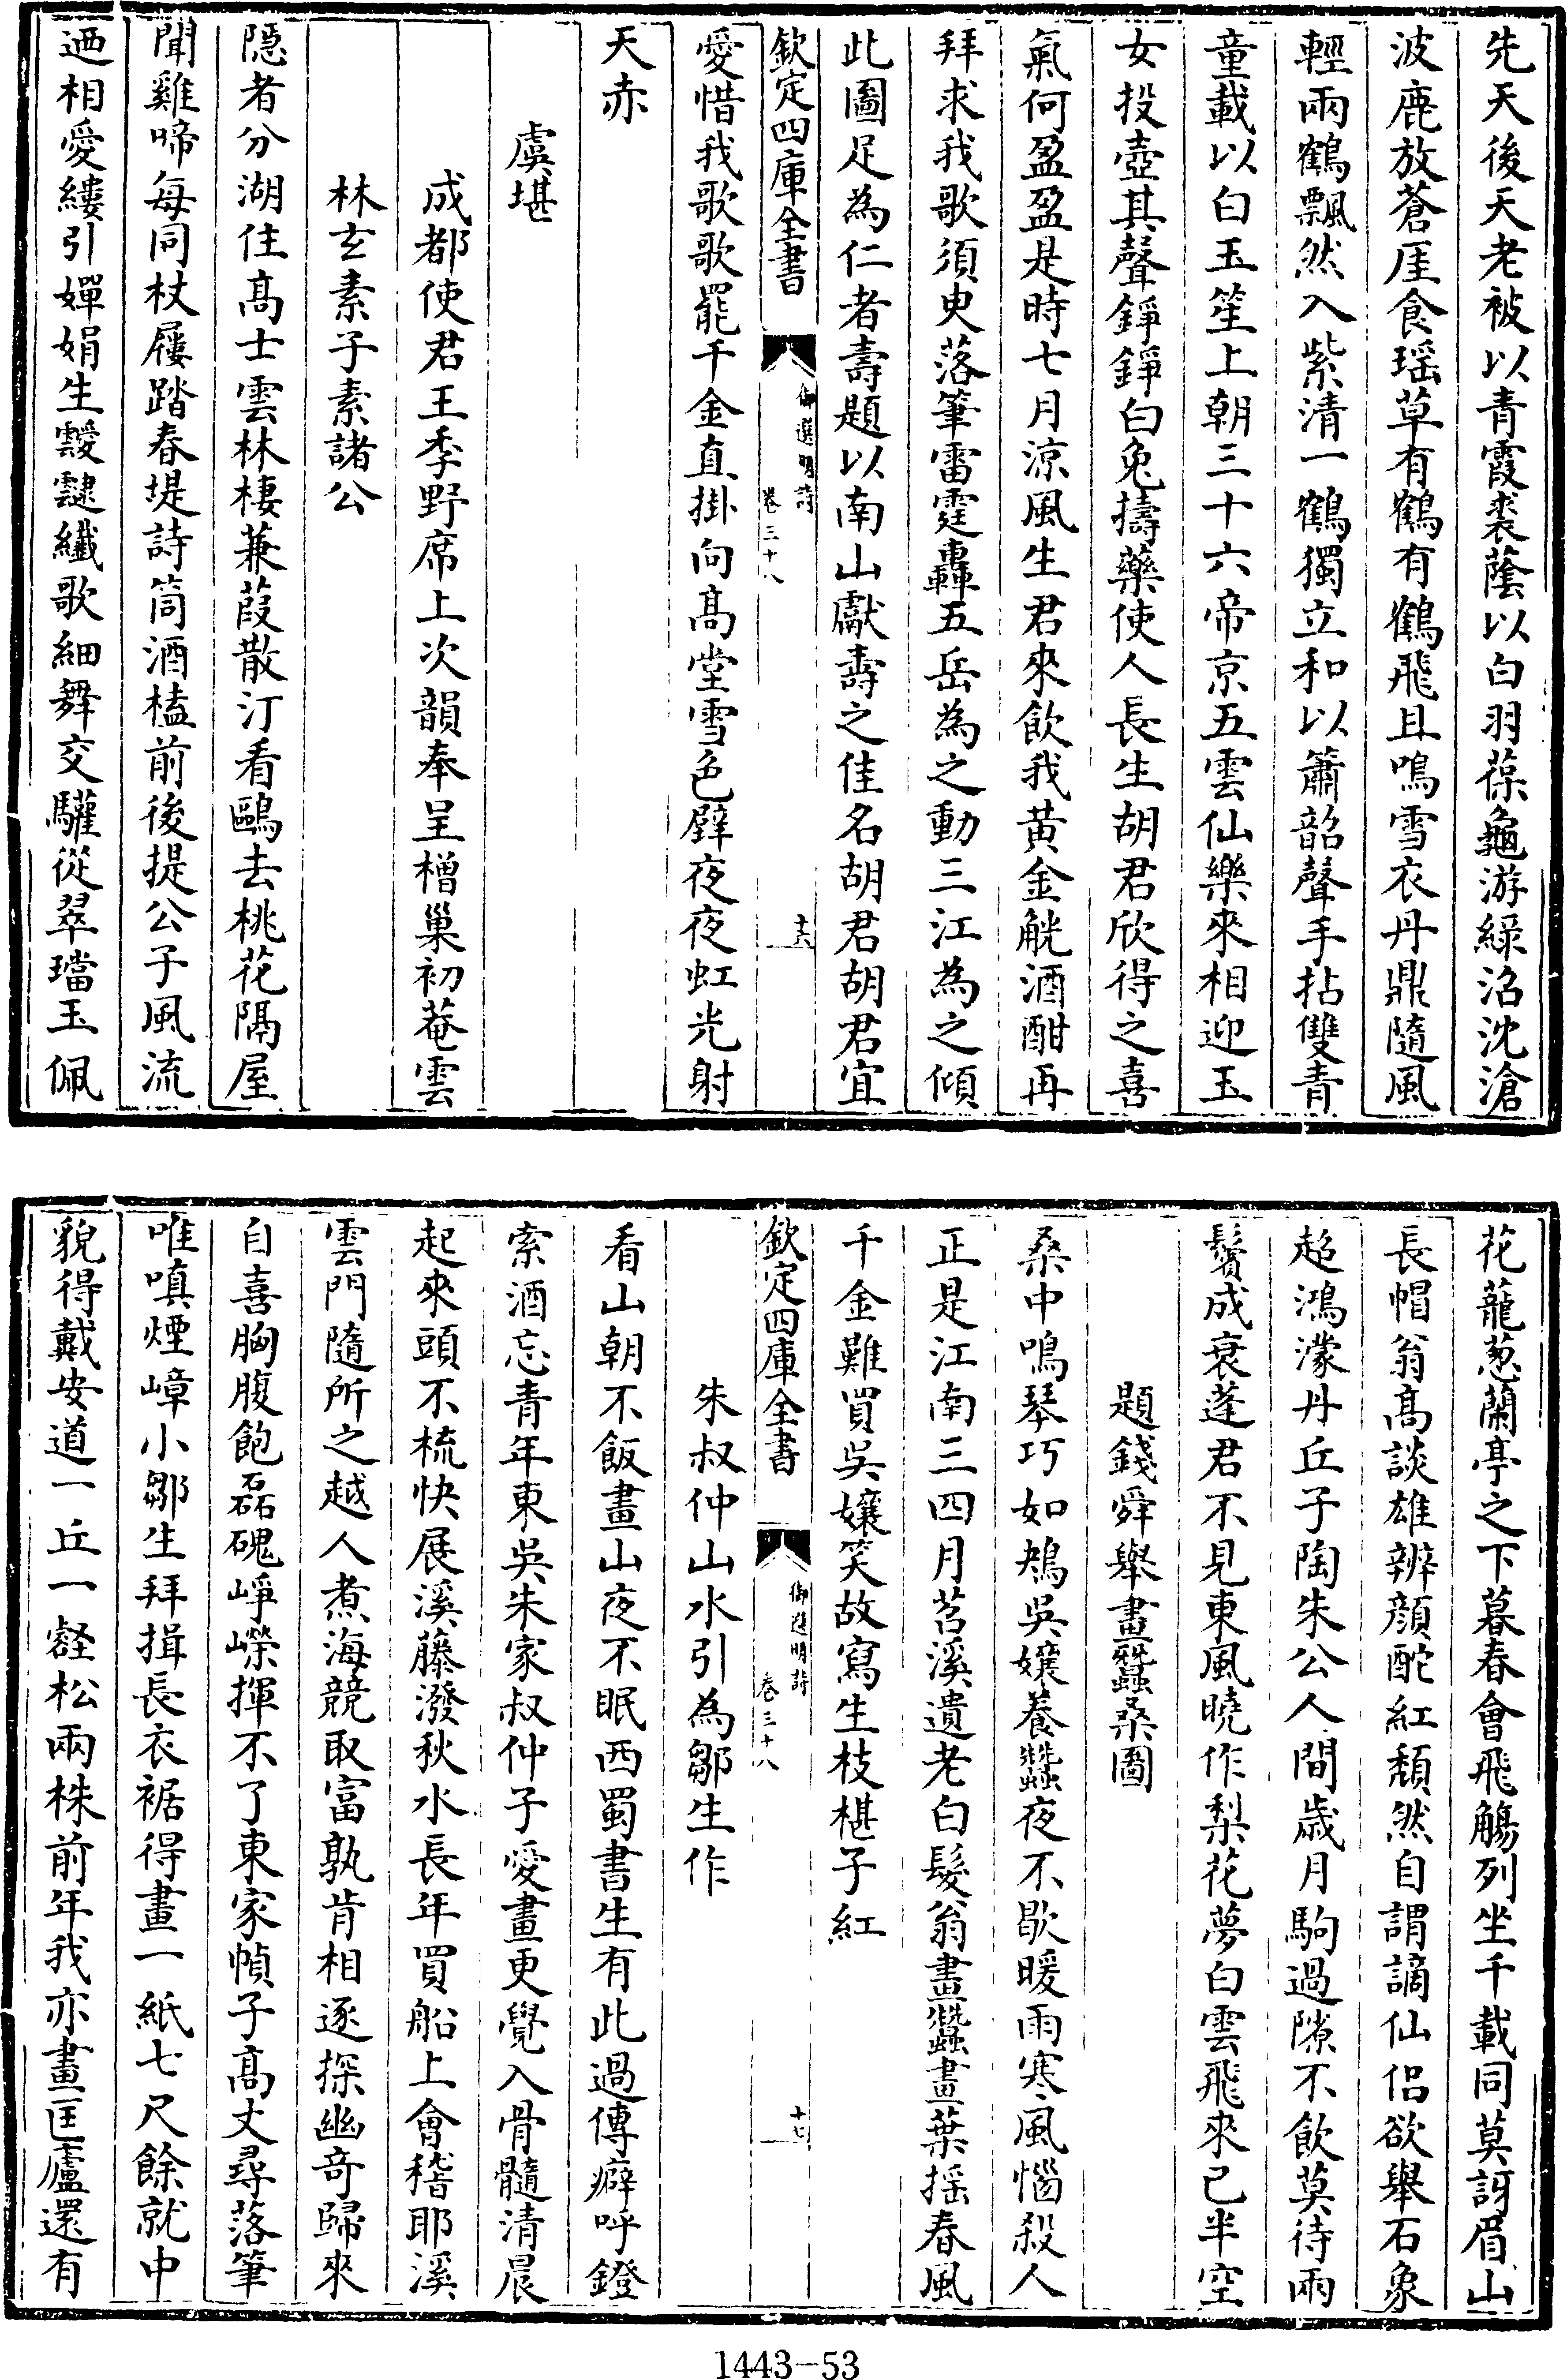 先天後天老被以青霞裘蔭以白羽葆龜游綠沼沈滄
波鹿放蒼厓食瑶草有鶴有鶴飛且鳴雪衣丹鼎隨風
輕兩鶴飄然入紫清一鶴獨立和以簫韶聲手拈雙青
童載以白玉笙上朝三十六帝京五雲仙樂來相迎玉
女投壺其聲錚錚白兔擣藥使人長生胡君欣得之喜
氣何盈盈是時七月涼風生君來飲我黄金觥酒酣再
拜求我歌須臾落筆雷霆轟五岳為之動三江為之傾
此圖足為仁者壽題以南山獻壽之佳名胡君胡君宜
欽定四庫全書
御選明詩
卷三十八
十六
愛惜我歌歌罷千金直掛向髙堂雪色壁夜夜虹光射
天赤
虞堪
成都使君王季野席上次韻奉呈橧巢初菴雲
林玄素子素諸公
隠者分湖住髙士雲林棲蒹葭散汀看鷗去桃花隔屋
聞雞啼每同杖屨踏春堤詩筒酒榼前後提公子風流
迺相愛縷引嬋娟生靉靆纎歌細舞交驩從翠璫玉佩
花蘢葱蘭亭之下暮春會飛觴列坐千載同莫訝眉山
長帽翁髙談雄辨顔酡紅頽然自謂謫仙侣欲舉石象
超鴻濛丹丘子陶朱公人間歲月駒過隙不飲莫待兩
鬢成衰蓬君不見東風曉作梨花夢白雲飛來已半空
題錢舜舉畫蠶桑圖
桑中鳴琴巧如鴂吳孃養蠶夜不歇暖雨寒風惱殺人
正是江南三四月苕溪遺老白髮翁畫蠶畫葉揺春風
千金難買吳孃笑故寫生枝椹子紅
欽定四庫全書
御選明詩
卷三十八
十七
朱叔仲山水引為鄒生作
看山朝不飯畫山夜不眠西蜀書生有此過傳癖呼鐙
索酒忘青年東吳朱家叔仲子愛畫更覺入骨髓清晨
起來頭不梳快展溪藤潑秋水長年買船上會稽耶溪
雲門隨所之越人煮海競取富孰肯相逐探幽奇歸來
自喜胸腹飽磊磈崢嶸揮不了東家幀子髙丈尋落筆
唯嗔煙嶂小鄒生拜揖長衣裾得畫一紙七尺餘就中
貌得戴安道一丘一壑松兩株前年我亦畫匡廬還有
1443-53